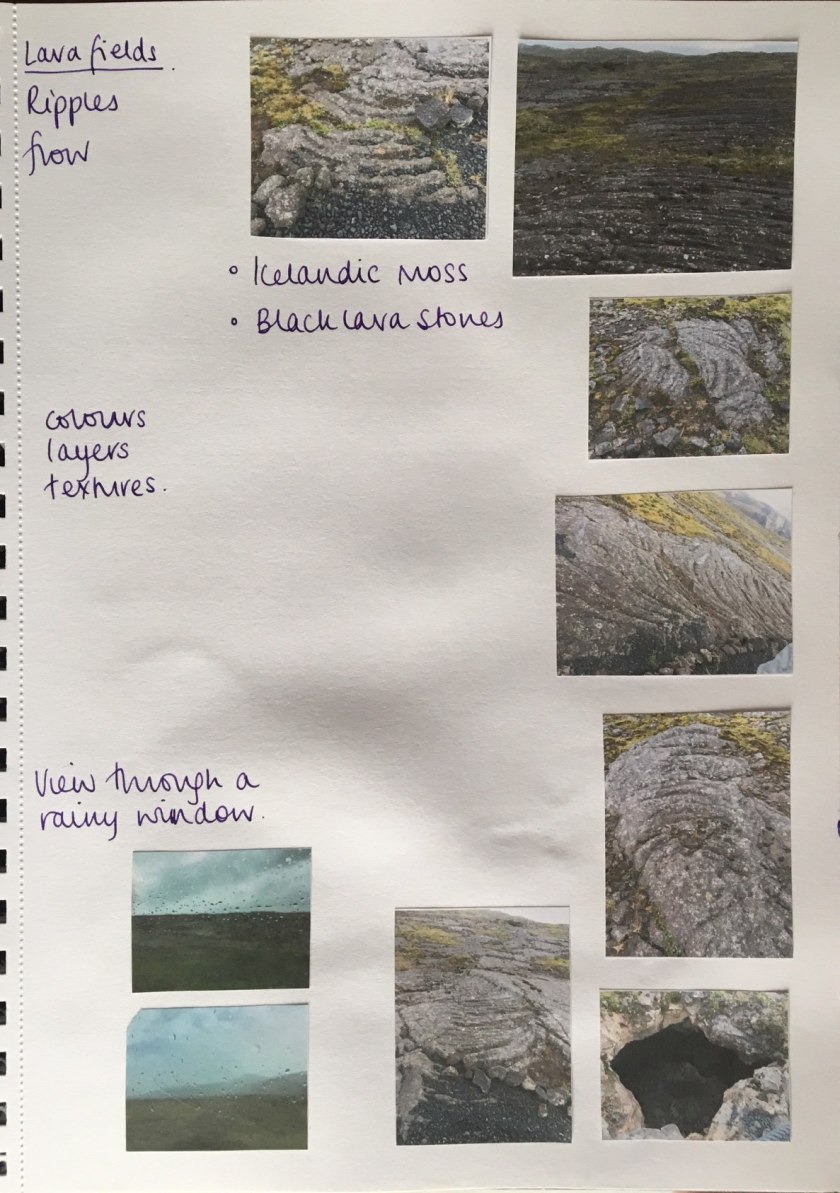 Lava fields.
Ripples
flow
• Icelandic moss
• Black lava stones
colours
layers
textures.
View through a
rainy window.